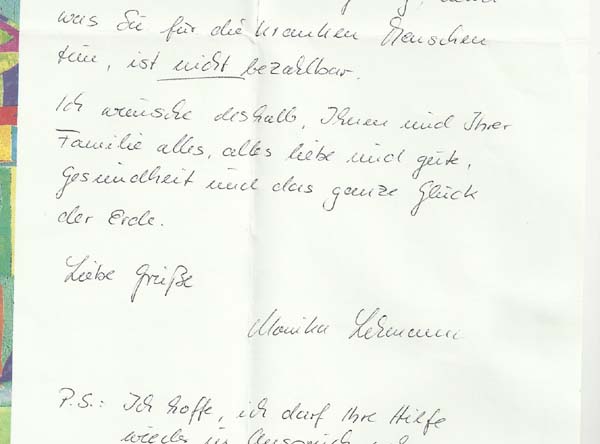 was Sie für die kranken Menschen
tun, ist nicht bezahlbar.
Ich wünsche deshalb, Ihnen und Ihrer
Familie alles, alles liebe und gute,
Gesundheit und das ganze Glück
der Erde.
Liebe Grüße
Monika Lehmann
P.S.: Ich hoffe, ich darf Ihre Hilfe
wieder in Anspruch